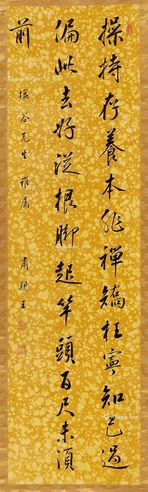 操持存養本非禪矯枉寧知已過
偏此去好從根腳起竿頭百尺未須
前
谷先生雅屬
肅親王